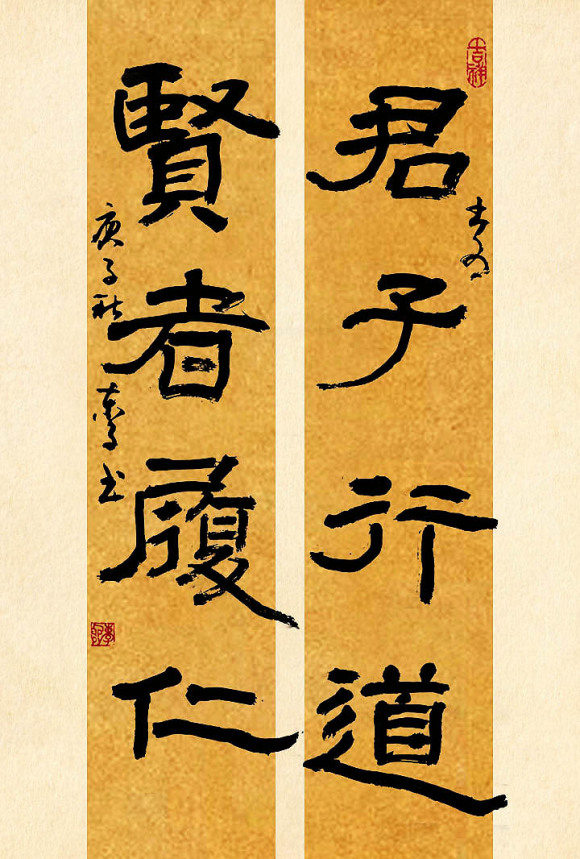 君子行道
賢者履仁
庚子秋
書
吉祥